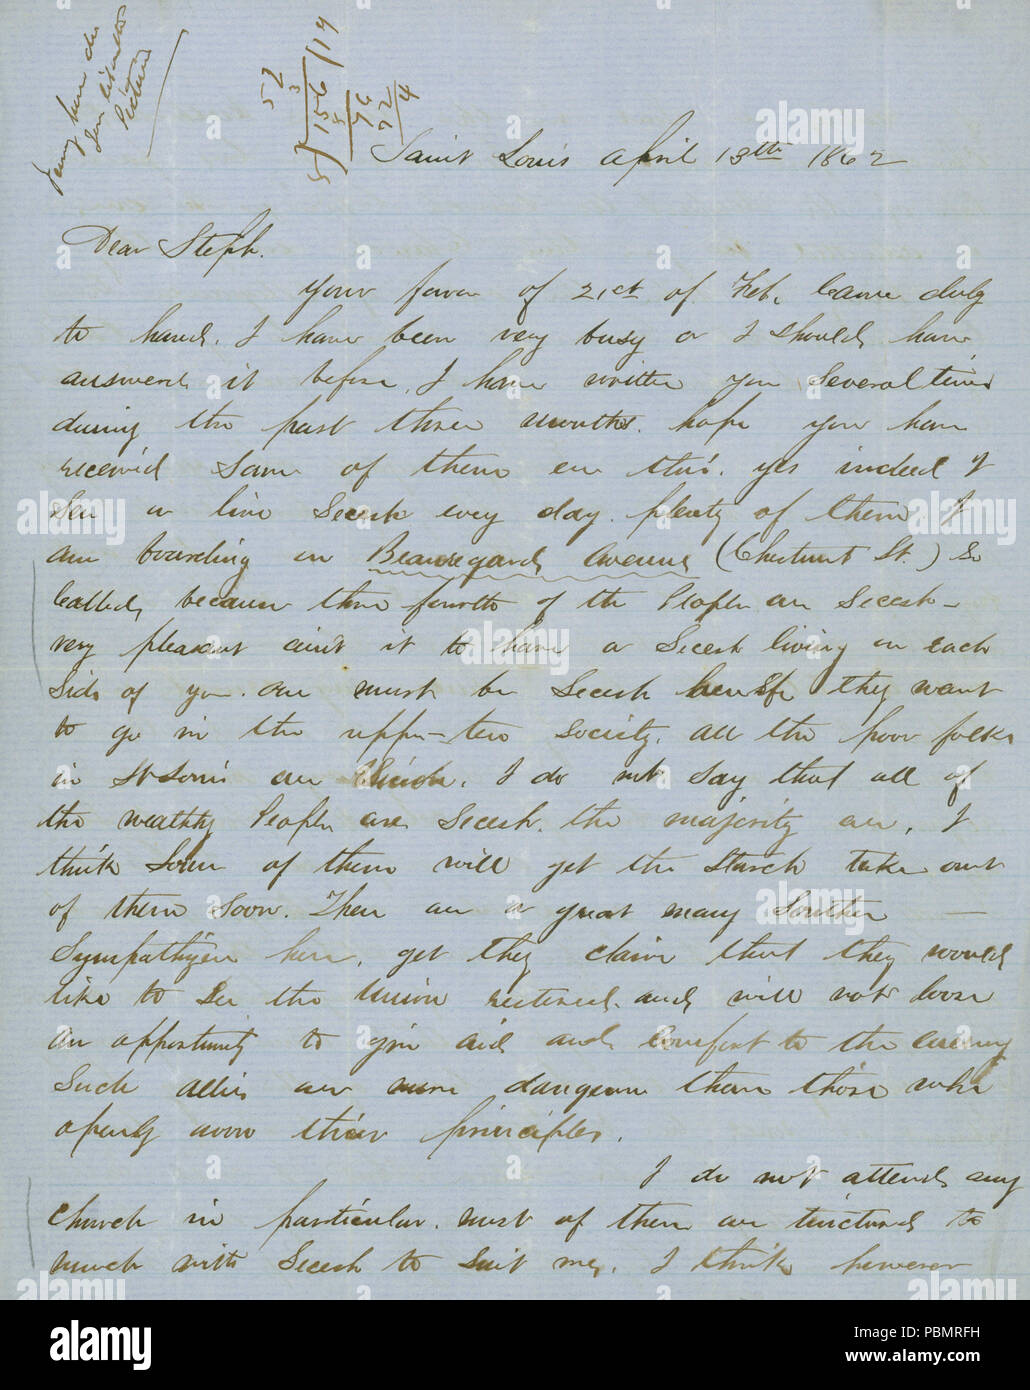 Saint Louis April 13th 1862
Dear Steph.
Your favor of 21st of Feb. came duly
to hand. I have been very busy or I should have
answered it before. I have written you several times
during the past three months. hope you have
received some of them ere this. yes indeed I
see a live Secesh every day. plenty of them I
am boarding on Beauregards Avenue (Chestnut St.) So
Called, because three fourths of the People are Secesh-
very pleasant aint it to have a Secesh living on each
side of you. one must be Secesh they want
to go in the upper-ten Society. all the poor folks
in St Louis are Union. I do not say that all of
the wealthy People are Secesh. the majority are. I
think some of them will get the starch taken out
of them soon. There are a great many Southern
Sympathizers here, yet they claim that they would
like to See the Union restored. and will not loose
an opportunity to give aid and comfort to the enemy
Such allies are more dangerous then those who
openly avow their principles.
I do not attend any
church in particular. most of them are tinctured to
much with Secesh to suit me. I think however
52
3
5) 156 /19
5
96
92
4
alamy
a
alamy stock photo
PBMRFH
www.alamy.com